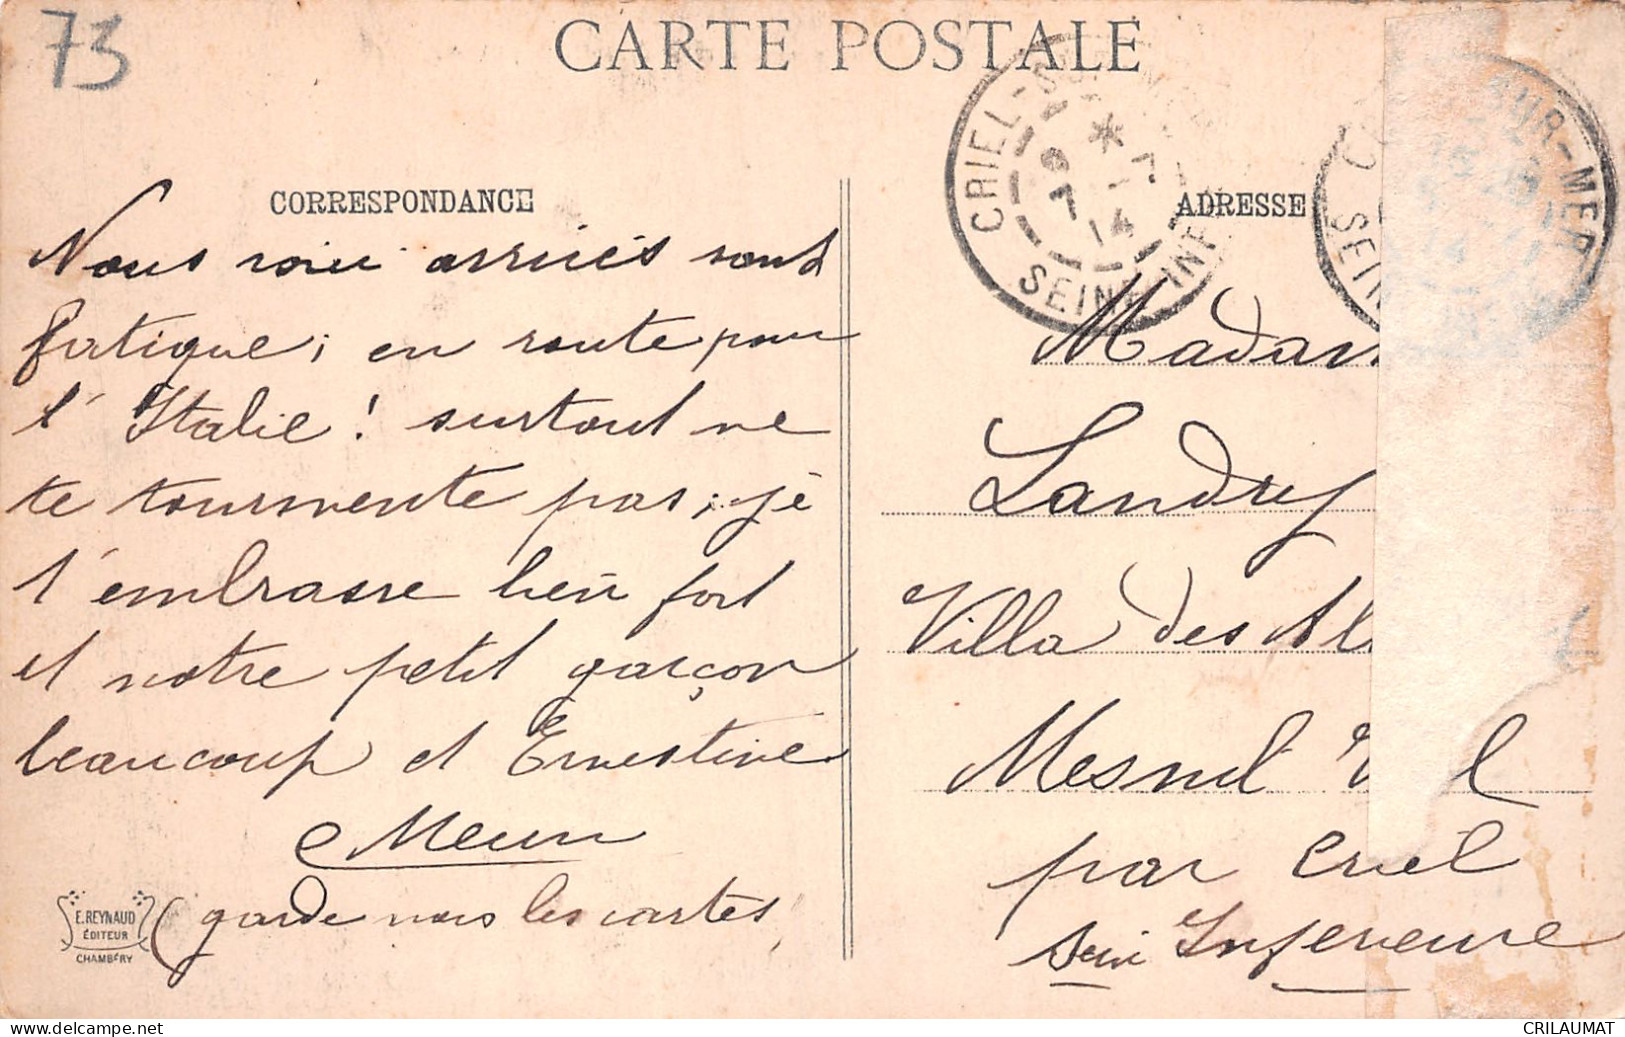 73
CARTE POSTALE
CORRESPONDANCE
Nous voici arrivés sans
fatigue; en route pour
l'Italie! surtout ne
te tourmente pas, je
t'embrasse bien fort
et notre petit garçon
beaucoup et Ernestine
(garde nous les cartes
E. REYNAUD
ÉDITEUR
CHAMBÉRY
CRIEL-SUR-
7
14
SEINE INF
ADRESSE
SUR-MER
SEIN
Madam
Landry
Villa des Al
Mesnil V l
par Criel
Seine Inferieure
CRILAUMAT